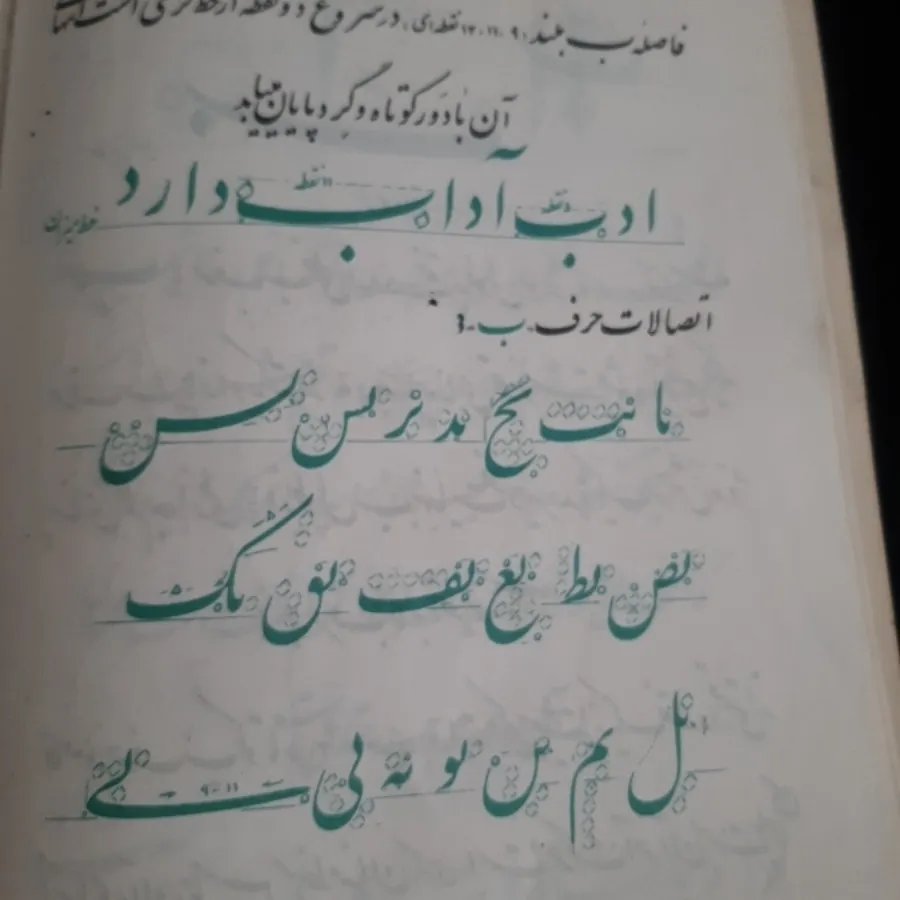 فاصلهٔ ب بلند ۹، ۱۱، ۱۳ نقطه‌ای، در شروع دو نقطه از خط کرسی
آن با دَور کوتاه و گِرد پایان مییابد
ادب آداب دارد
۵ نقطه ۱۱ نقطه
اتصالات حرف ب
با بب بج بد بر بس بس
بص بط بع بف بق بک
بل بم بن بو به بی بے
۹-۱۱